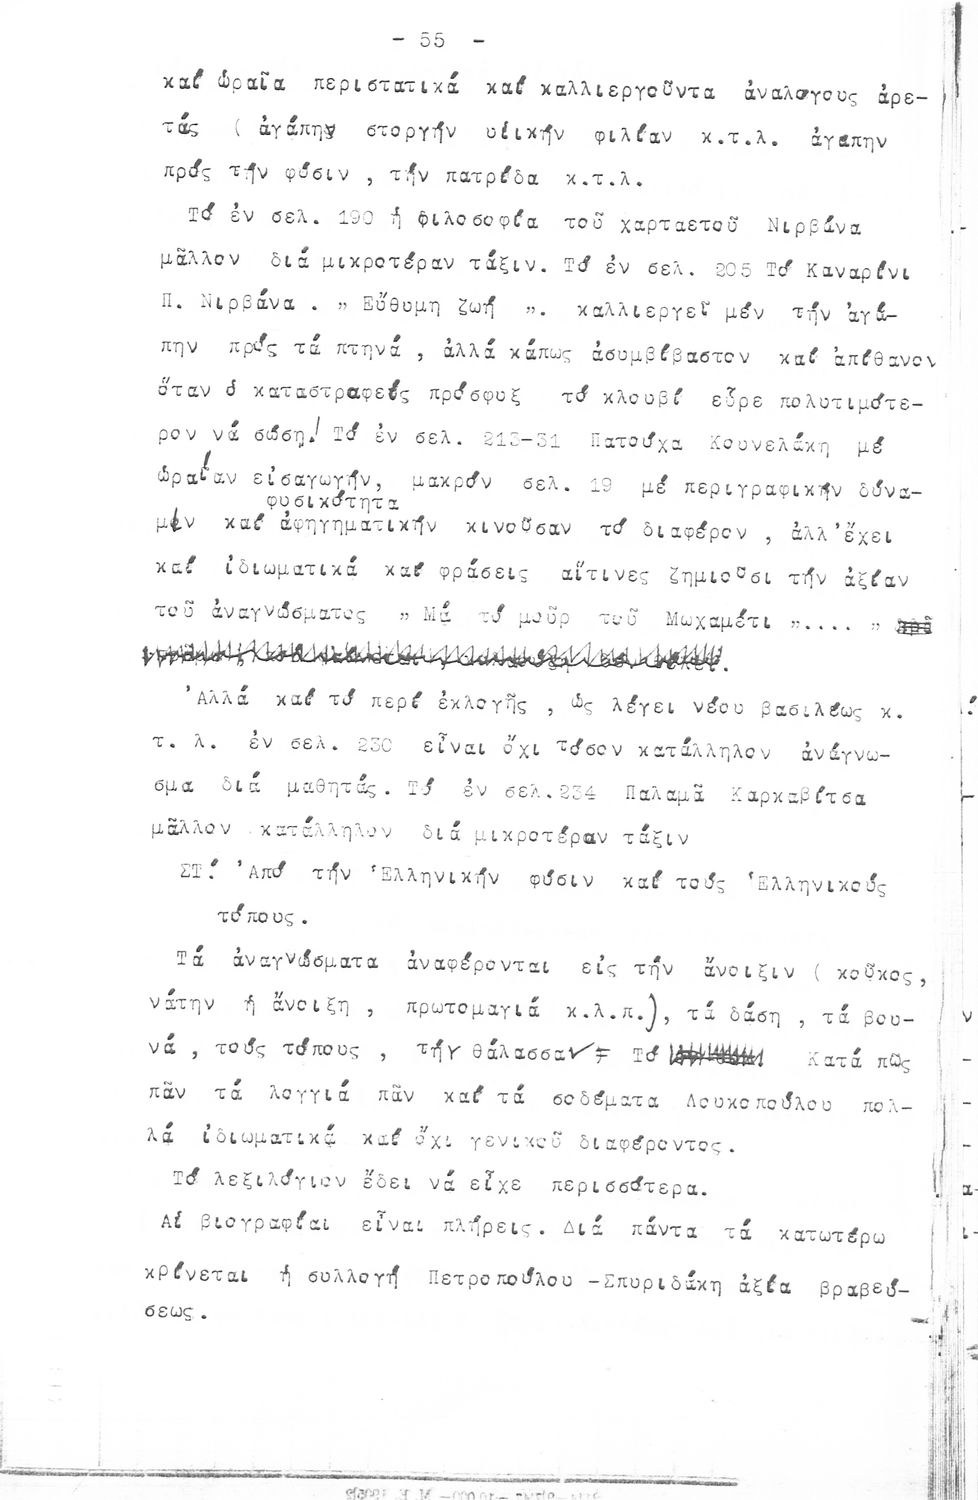 - 55 -
καί ὡραῖα περιστατικά καί καλλιεργοῦντα ἀναλόγους ἀρε-
τάς ( ἀγάπην στοργήν υἱικήν φιλίαν κ.τ.λ. ἀγάπην
πρός τήν φύσιν , τήν πατρίδα κ.τ.λ.
Τό ἐν σελ. 190 ἡ φιλοσοφία τοῦ χαρταετοῦ Νιρβάνα
μᾶλλον διά μικροτέραν τάξιν. Τό ἐν σελ. 205 Τό Καναρίνι
Π. Νιρβάνα . " Εὔθυμη ζωή ". καλλιεργεῖ μέν τήν ἀγά-
πην πρός τά πτηνά , ἀλλά κάπως ἀσυμβίβαστον καί ἀπίθανον
ὅταν ὁ καταστραφείς πρόσφυξ τό κλουβί εὗρε πολυτιμότε-
ρον νά σώση! Τό ἐν σελ. 213-31 Πατούχα Κουνελάκη μέ
ὡραίαν εἰσαγωγήν, μακρόν σελ. 19 μέ περιγραφικήν δύνα-
φυσικότητα
μιν καί ἀφηγηματικήν κινοῦσαν τό διαφέρον , ἀλλ'ἔχει
καί ἰδιωματικά καί φράσεις αἵτινες ζημιοῦσι τήν ἀξίαν
τοῦ ἀναγνώσματος " Μά τό μοῦρ τοῦ Μωχαμέτι ".... "
'Αλλά καί τό περί ἐκλογῆς , ὡς λέγει νέου βασιλέως κ.
τ. λ. ἐν σελ. 230 εἶναι ὄχι τόσον κατάλληλον ἀνάγνω-
σμα διά μαθητάς. Τό ἐν σελ.234 Παλαμᾶ Καρκαβίτσα
μᾶλλον κατάλληλον διά μικροτέραν τάξιν
ΣΤ! 'Από τήν 'Ελληνικήν φύσιν καί τούς 'Ελληνικούς
τόπους.
Τά ἀναγνώσματα ἀναφέρονται εἰς τήν ἄνοιξιν ( κοῦκος,
νάτην ἡ ἄνοιξη , πρωτομαγιά κ.λ.π.), τά δάση , τά βου-
νά , τούς τόπους , τήν θάλασσαν Τό Κατά πῶς
πᾶν τά λογγιά πᾶν καί τά σοδέματα Λουκοπούλου πολ-
λά ἰδιωματικά καί ὄχι γενικοῦ διαφέροντος.
Τό λεξιλόγιον ἔδει νά εἶχε περισσότερα.
Αἱ βιογραφίαι εἶναι πλήρεις. Διά πάντα τά κατωτέρω
κρίνεται ἡ συλλογή Πετροπούλου -Σπυριδάκη ἀξία βραβεύ-
σεως.